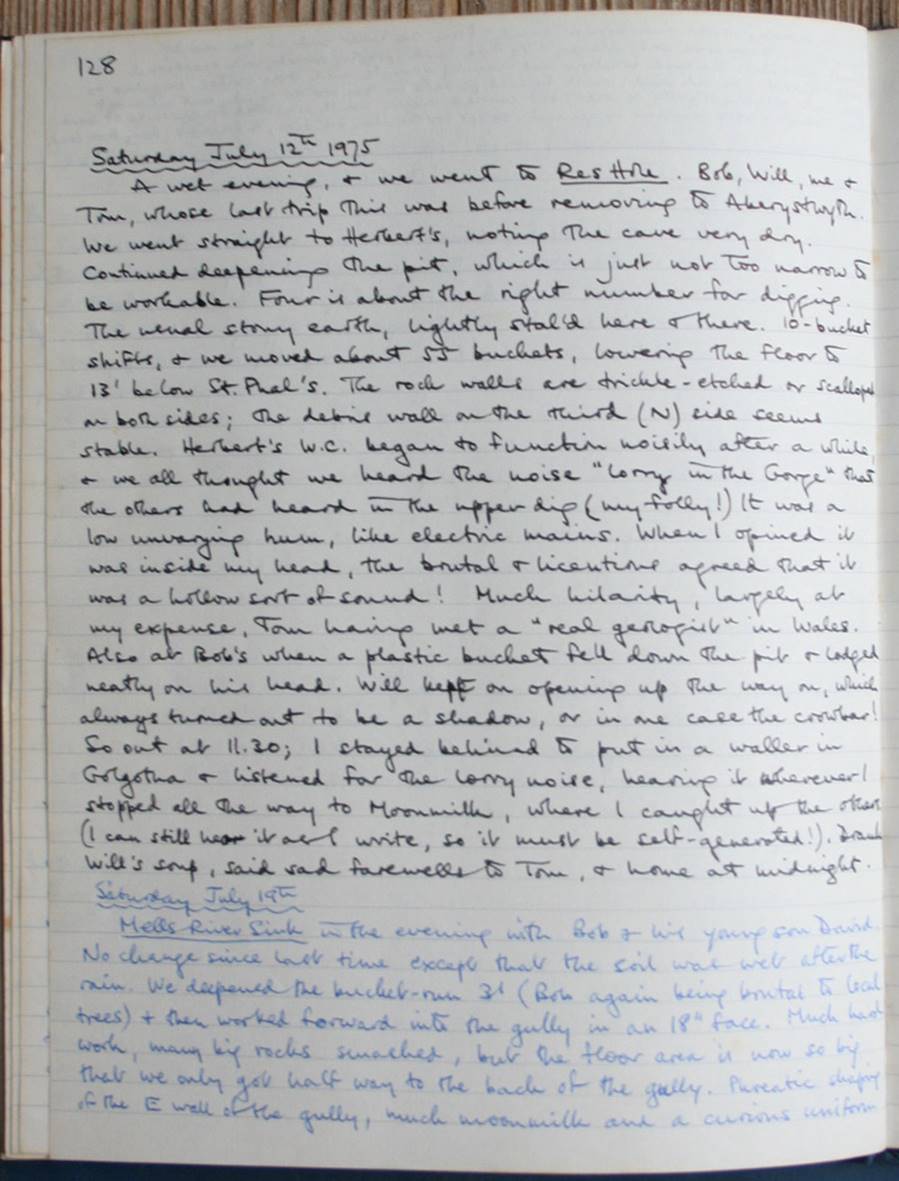 128
Saturday July 12th 1975
A wet evening, & we went to Res Hole. Bob, Will, me &
Tom, whose last trip this was before removing to Aberystwyth.
We went straight to Herbert's, noting the cave very dry.
Continued deepening the pit, which is just not too narrow to
be workable. Four is about the right number for digging.
The usual stony earth, lightly stal'd here & there. 10-bucket
shifts, & we moved about 55 buckets, lowering the floor to
13' below St. Phal's. The rock walls are trickle-etched or scalloped
on both sides; the debris wall on the third (N) side seems
stable. Herbert's W.C. began to function noisily after a while,
& we all thought we heard the noise "lorry in the Gorge" that
the others had heard in the upper dig (my folly!) It was a
low unvarying hum, like electric mains. When I opined it
was inside my head, the brutal & licentious agreed that it
was a hollow sort of sound! Much hilarity, largely at
my expense, Tom having met a "real geologist" in Wales.
Also at Bob's when a plastic bucket fell down the pit & lodged
neatly on his head. Will kept on opening up the way on, which
always turned out to be a shadow, or in one case the crowbar!
So out at 11.30; I stayed behind to put in a waller in
Golgotha & listened for the lorry noise, hearing it wherever I
stopped all the way to Moonmilk, where I caught up the others
(I can still hear it as I write, so it must be self-generated!). Drank
Will's soup, said sad farewells to Tom, & home at midnight.
Saturday July 19th
Mells River Sink in the evening with Bob & his young son David.
No change since last time except that the soil was wet after the
rain. We deepened the bucket-run 3' (Bob again being brutal to local
trees) & then worked forward into the gully in an 18" face. Much hard
work, many big rocks smashed, but the floor area is now so big
that we only got half way to the back of the gully. Phreatic shaping
of the E wall of the gully, much moonmilk and a curious uniform